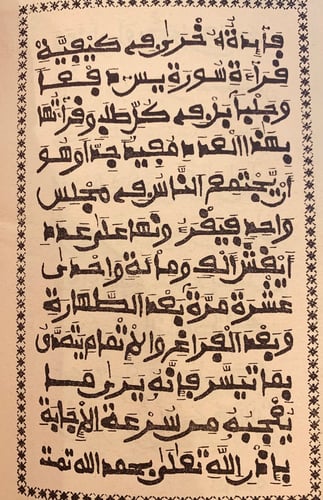 فائدة أخرى في كيفية
قراءة سورة يس دفعا
وجلبا أي في كل طلب وقراءتها
بهذا العدد مفيد جدا وهو
أن يجتمع الناس في مجلس
واحد فيقرءونها على عدد
أيقش ألف ومائة وإحدى
عشرة مرة بعد الطهارة
وبعد الفراغ والإتمام يتصدق
بما تيسر فإنه يرى ما
يعجبه من سرعة الإجابة
بإذن الله تعلى بحمد الله تمت